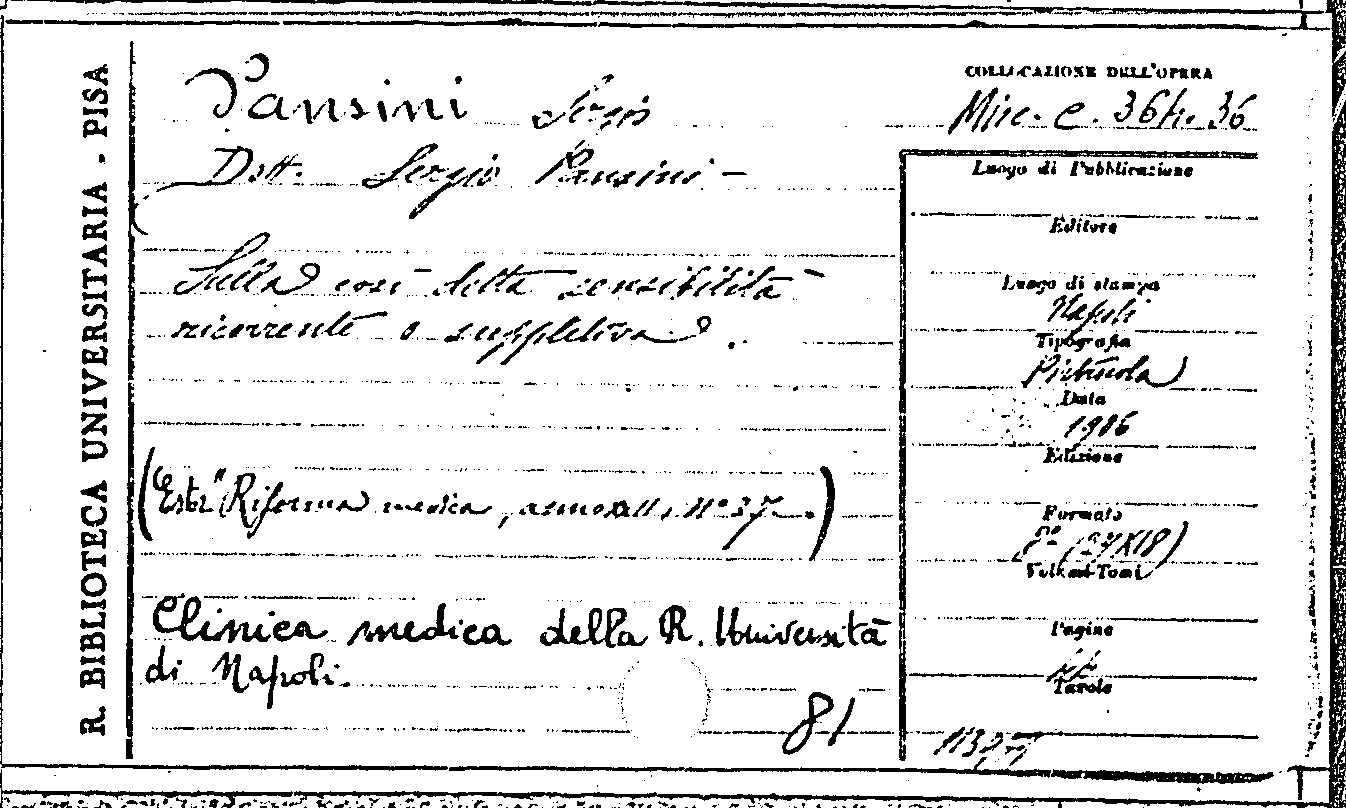 R. BIBLIOTECA UNIVERSITARIA - PISA
Pansini Sergio
Dott. Sergio Pansini -
Sulla così detta sensibilità
ricorrente o suppletiva.
(Estr. "Riforma medica, anno XXII, n° 37.)
Clinica medica della R. Università
di Napoli.
81
COLLOCAZIONE DELL'OPERA
Misc. C. 364. 36
Luogo di Pubblicazione
Editore
Luogo di stampa
Napoli
Tipografia
Data
1906
Edizione
Formato
8° (27X18)
Volumi-Tomi
Pagine
Tavole